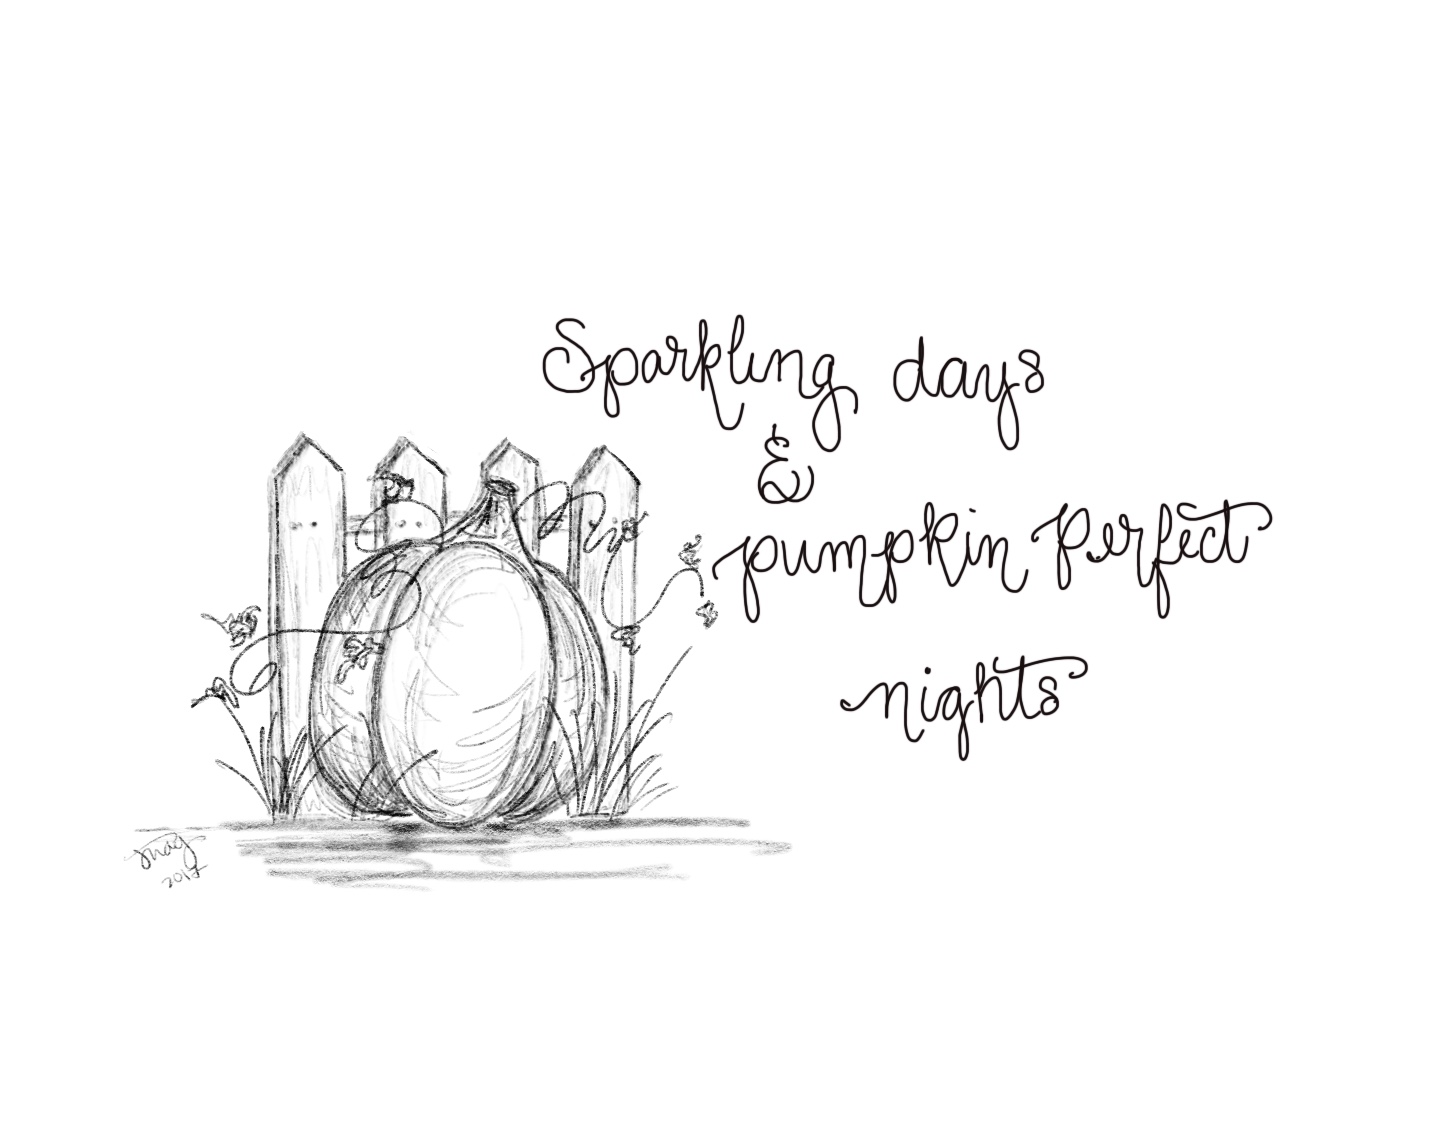 Sparkling days
&
pumpkin Perfect
nights
2017